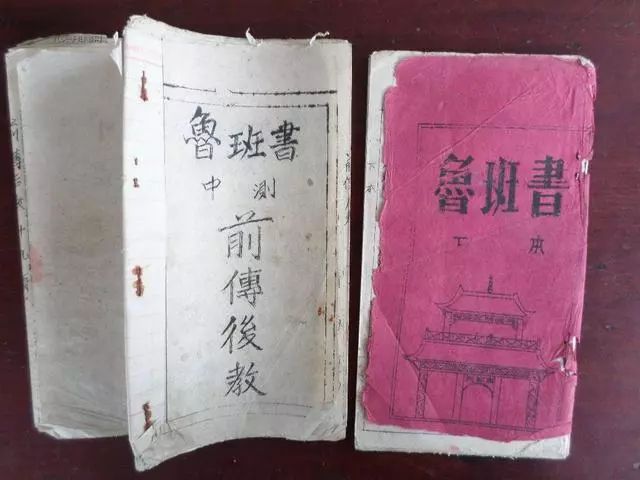 魯班書
中 測
前傳後教
魯班書
下 本